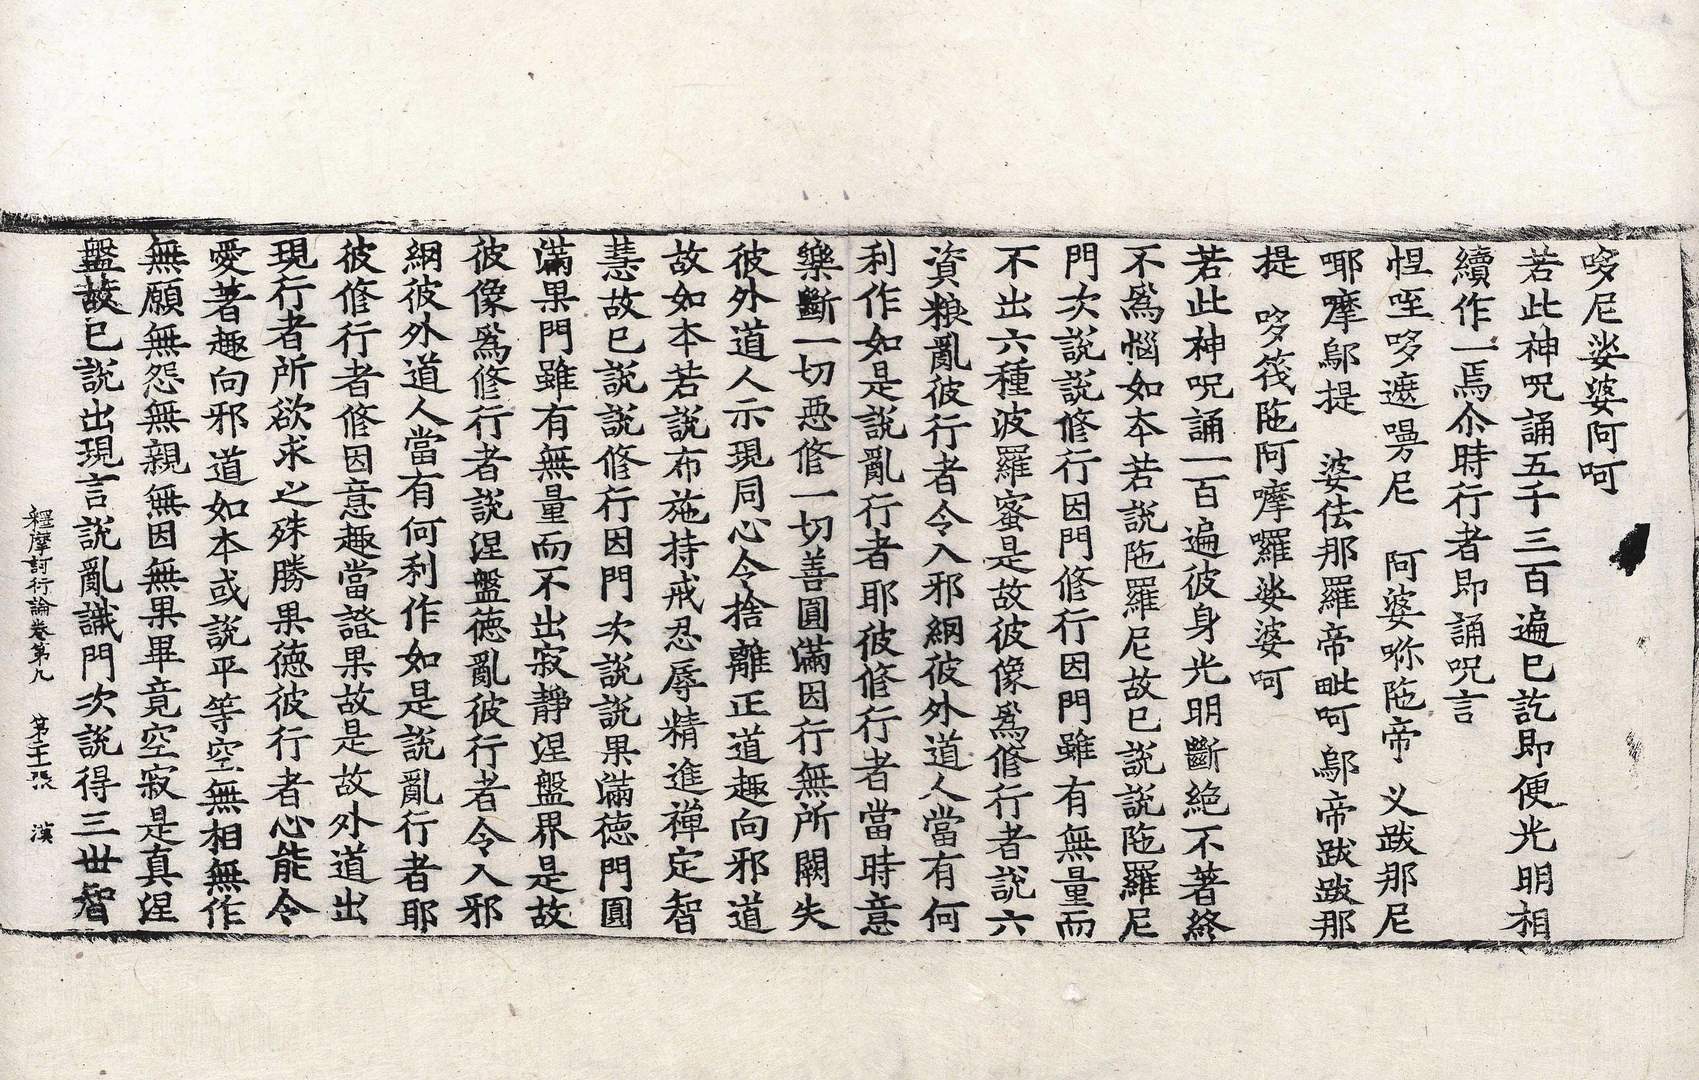 哆尼娑婆阿呵
若此神呪誦五千三百遍已訖即便光明相
續作一焉尒時行者即誦呪言
怛咥哆遮㘄尼　阿婆㖿陁帝　义跋那尼
㖿摩鄔提　婆佉那羅帝毗呵鄔帝跋跋那
提　哆筏陁阿嚤囉娑婆呵
若此神呪誦一百遍彼身光明斷絶不著終
不爲惱如本若說陁羅尼故已說說陁羅尼
門次說說修行因門修行因門雖有無量而
不出六種波羅蜜是故彼像爲修行者說六
資粮亂彼行者令入邪網彼外道人當有何
利作如是說亂行者耶彼修行者當時意
樂斷一切惡修一切善圓滿因行無所闕失
彼外道人示現同心令捨離正道趣向邪道
故如本若說布施持戒忍辱精進禪定智
慧故已說說修行因門次說說果滿德門圓
滿果門雖有無量而不出寂靜涅盤界是故
彼像爲修行者說涅盤德亂彼行者令入邪
網彼外道人當有何利作如是說亂行者耶
彼修行者修因意趣當證果故是故外道出
現行者所欲求之殊勝果德彼行者心能令
愛著趣向邪道如本或說平等空無相無作
無願無怨無親無因無果畢竟空寂是真涅
盤故已說出現言說亂識門次說得三世智
釋摩訶衍論卷第九　第二十一張　漢